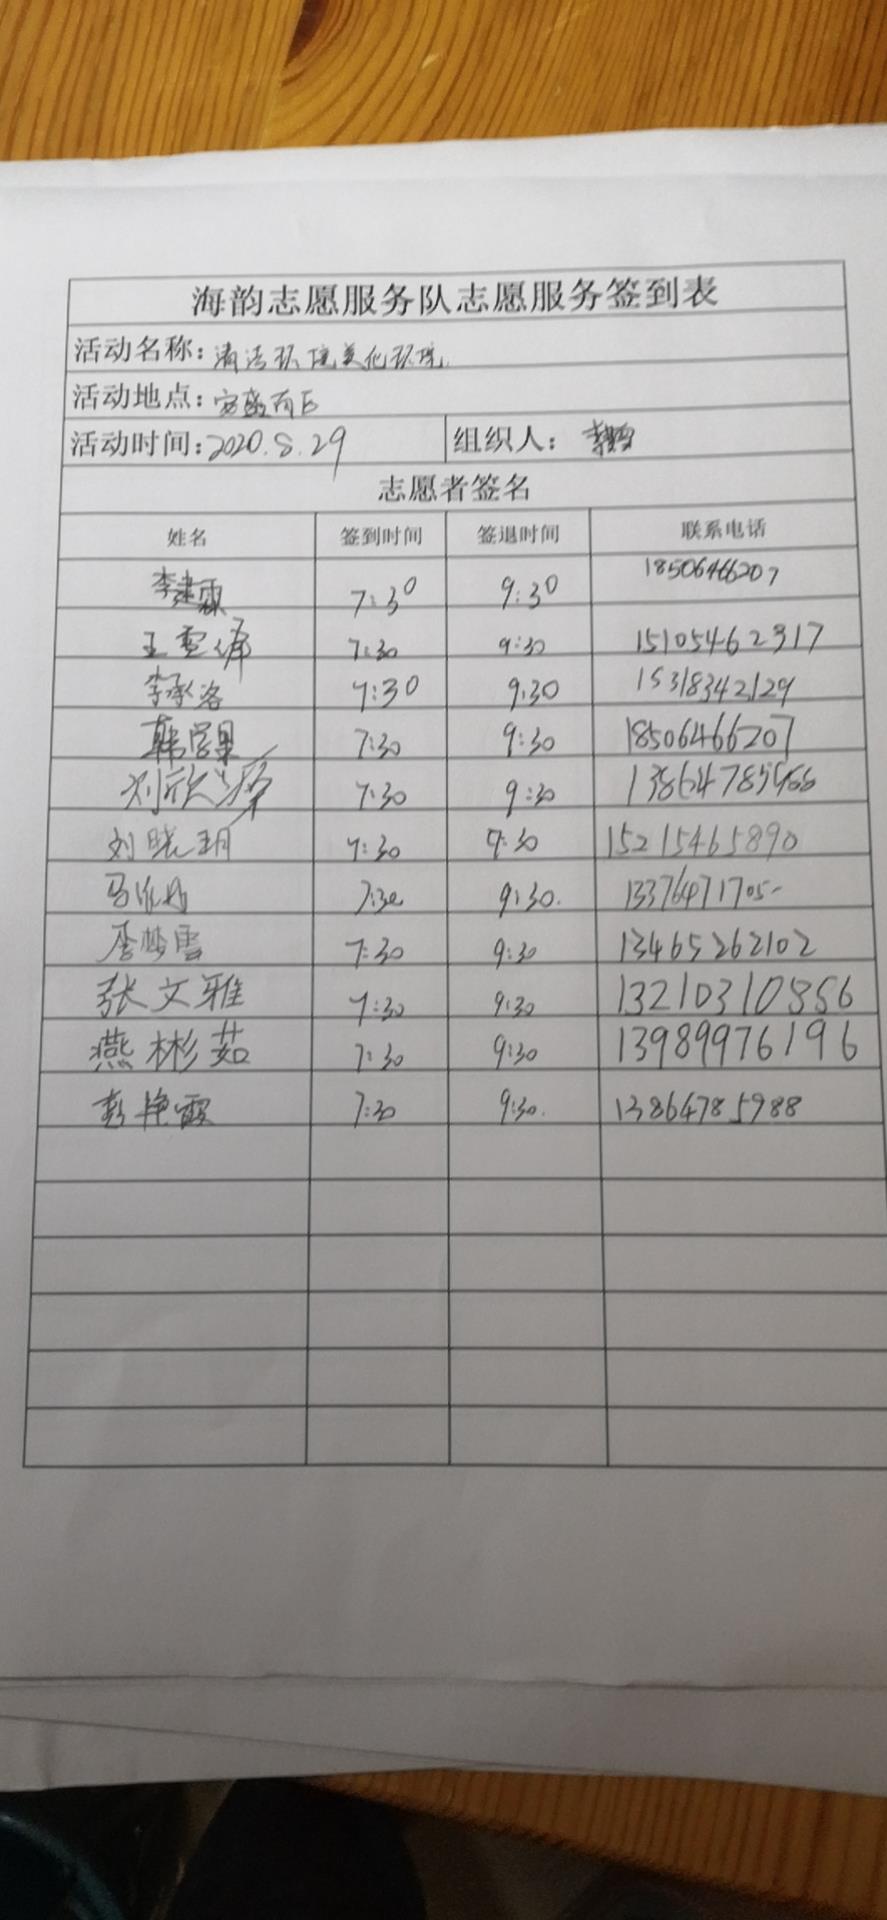 海韵志愿服务队志愿服务签到表
活动名称：清洁环境美化环境
活动地点：安盛南区
活动时间：2020.8.29 组织人：
志愿者签名
姓名 签到时间 签退时间 联系电话
李建霖 7:30 9:30 18506466207
王雪婷 7:30 9:30 15105462317
李承洛 7:30 9:30 15318342129
韩学果 7:30 9:30 18506466207
刘欣 7:30 9:30
刘晓玥 7:30 9:30 15215465890
7:30 9:30. 13376471705
李梦雪 7:30 9:30 13465262102
张文雅 7:30 9:30 13210310856
燕彬茹 7:30 9:30 13989976196
彭艳霞 7:30 9:30. 13864785988